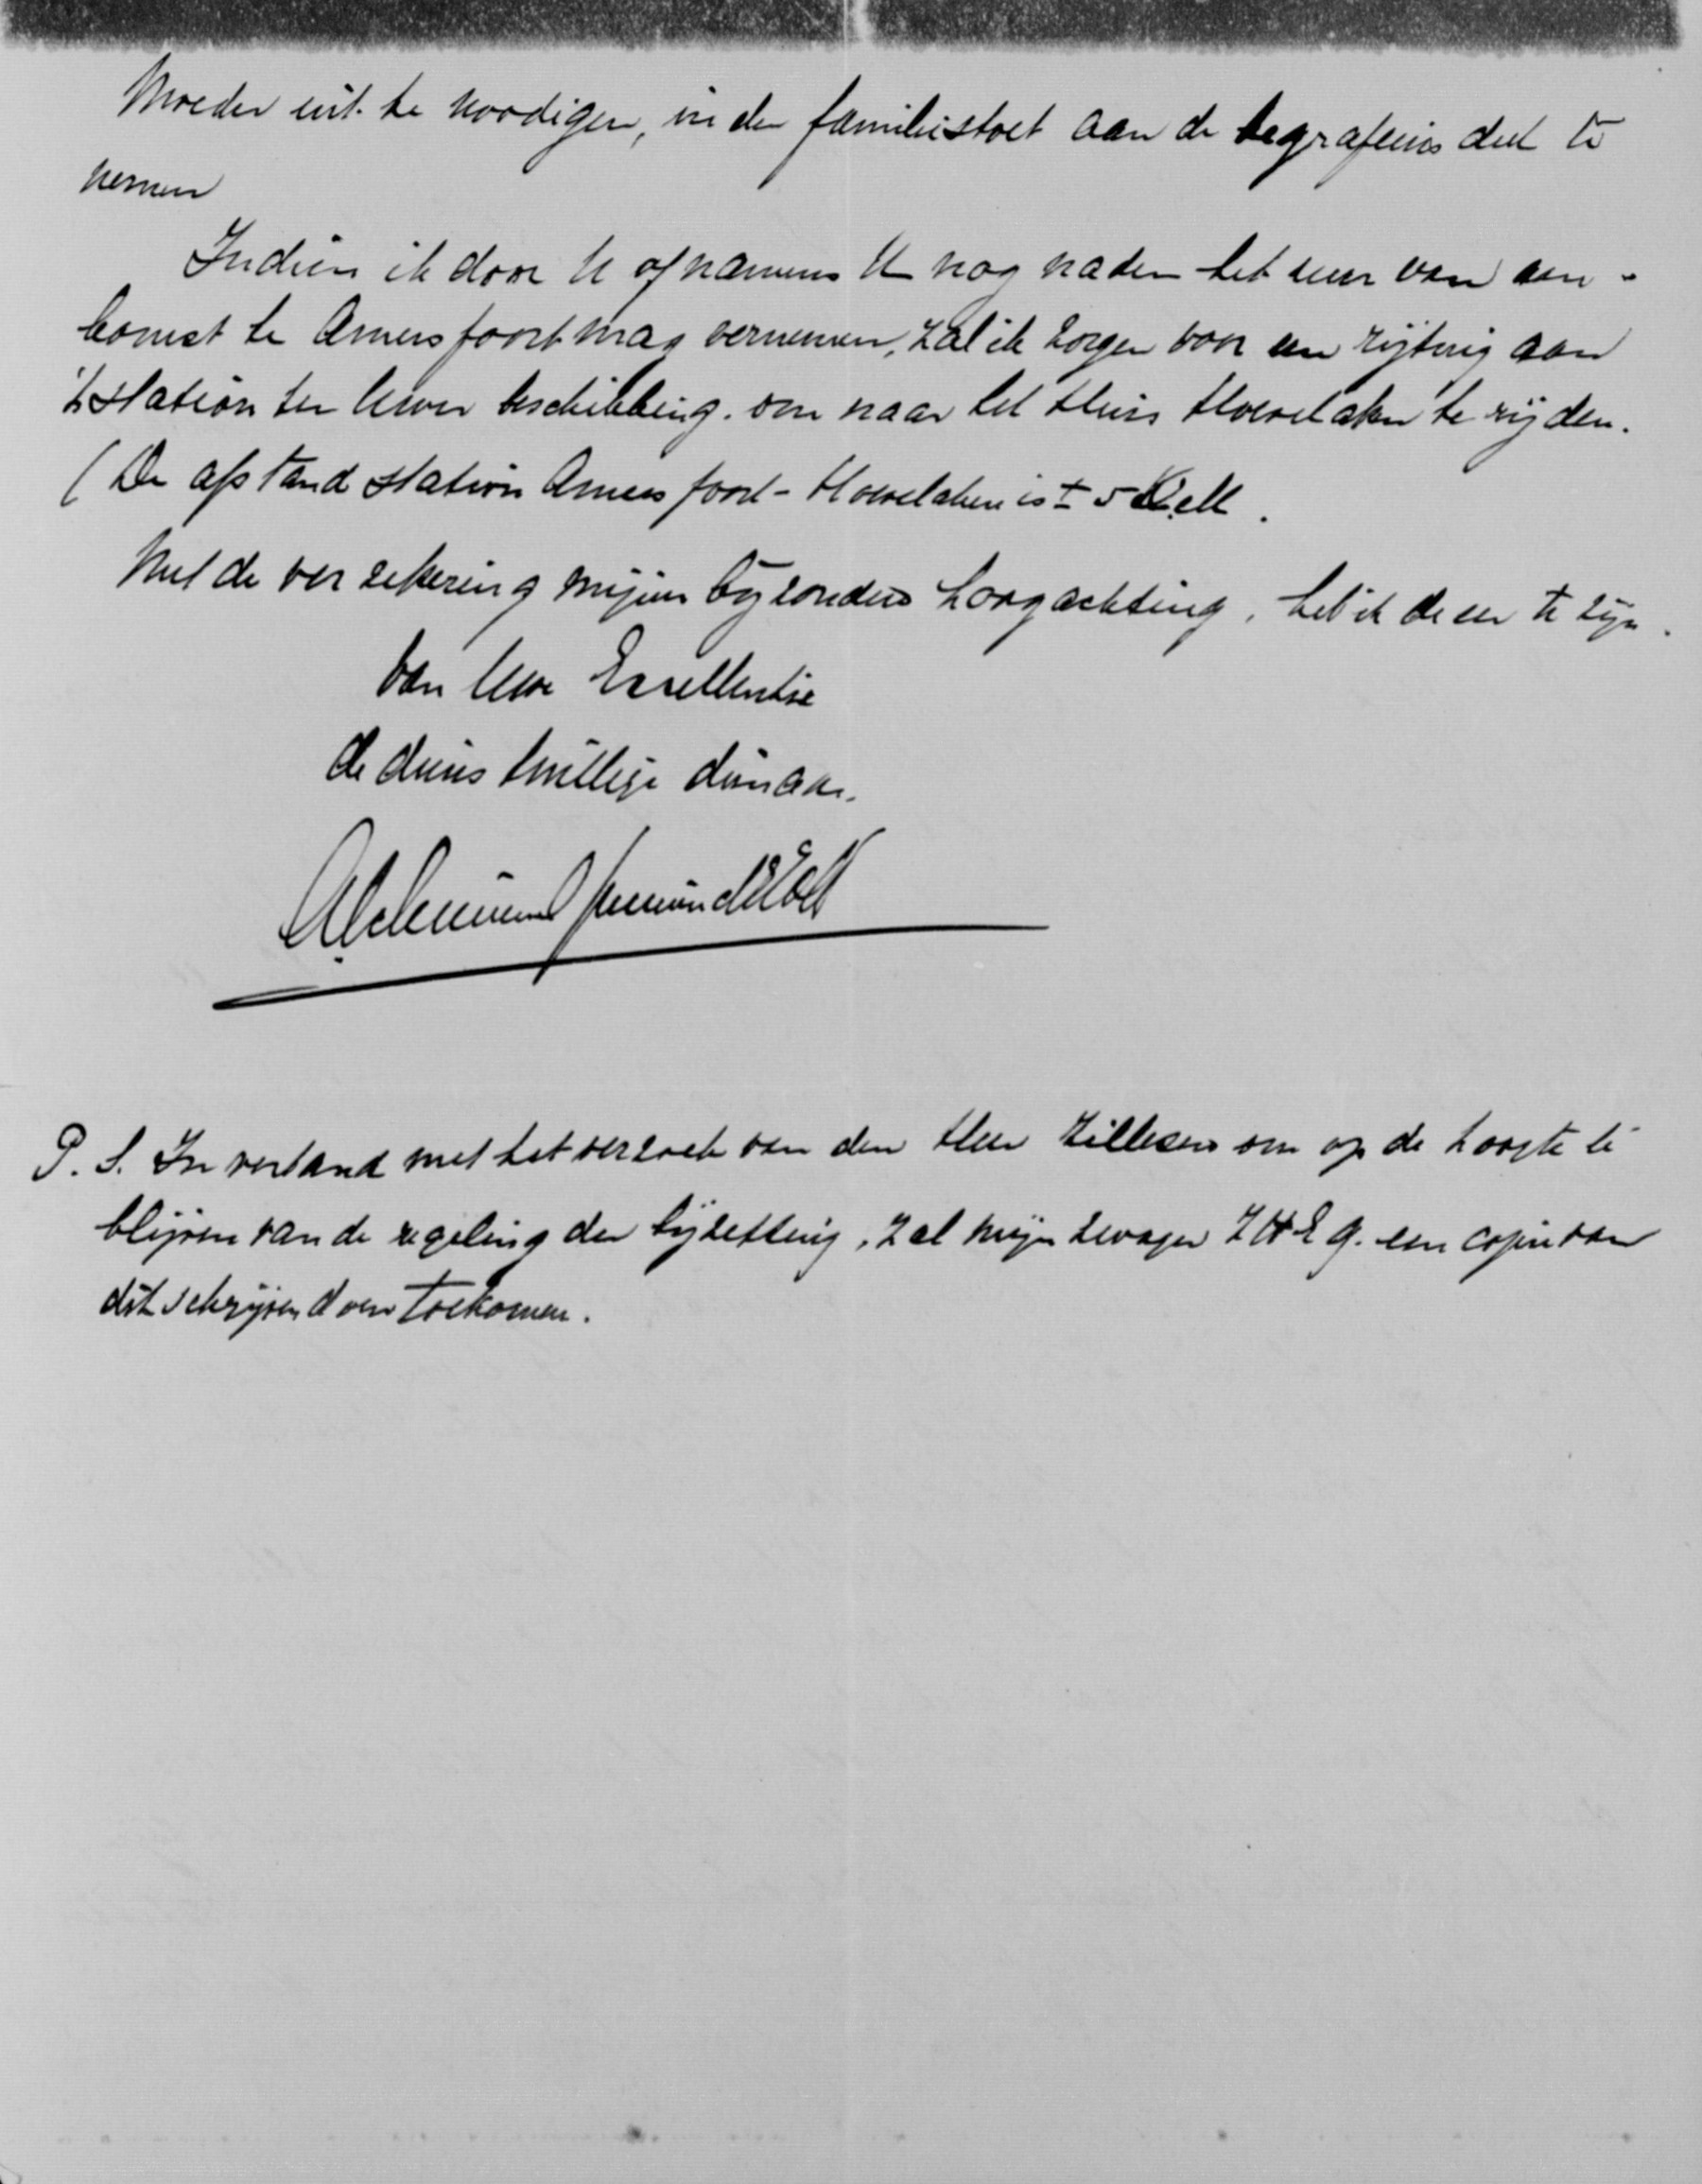 Moeder uit te noodigen, in den familiestoet aan de begrafenis deel te
nemen
Indien ik door U of namens U nog nader het uur van aan-
komst te Amersfoort mag vernemen, zal ik zorgen voor een rijtuig aan
't station ter Uwer beschikking. om naar het Huis Hoevelaken te rijden.
(De afstand station Amersfoort - Hoevelaken is ± 5 K.M.
Met de verzekering mijner bijzondere hoogachting, heb ik de eer te zijn.
van Uwe Excellentie
de dienstwillige dienaar.
P. S. In verband met het verzoek van den Heer Zillesen om op de hoogte te
blijven van de regeling der bijzetting, zal mijn zwager ZHEG. een copie van
dit schrijven doen toekomen.